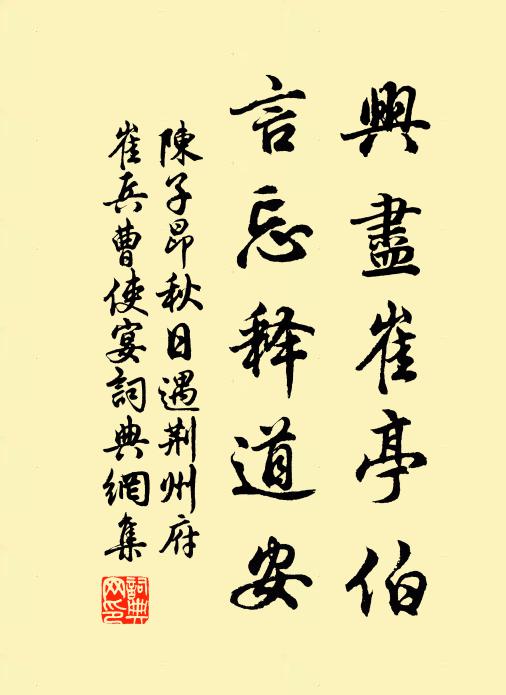 興盡崔亭伯
言忘释道安
陳子昂秋日遇荆州府
崔兵曹使宴詞典網集
詞典
网印